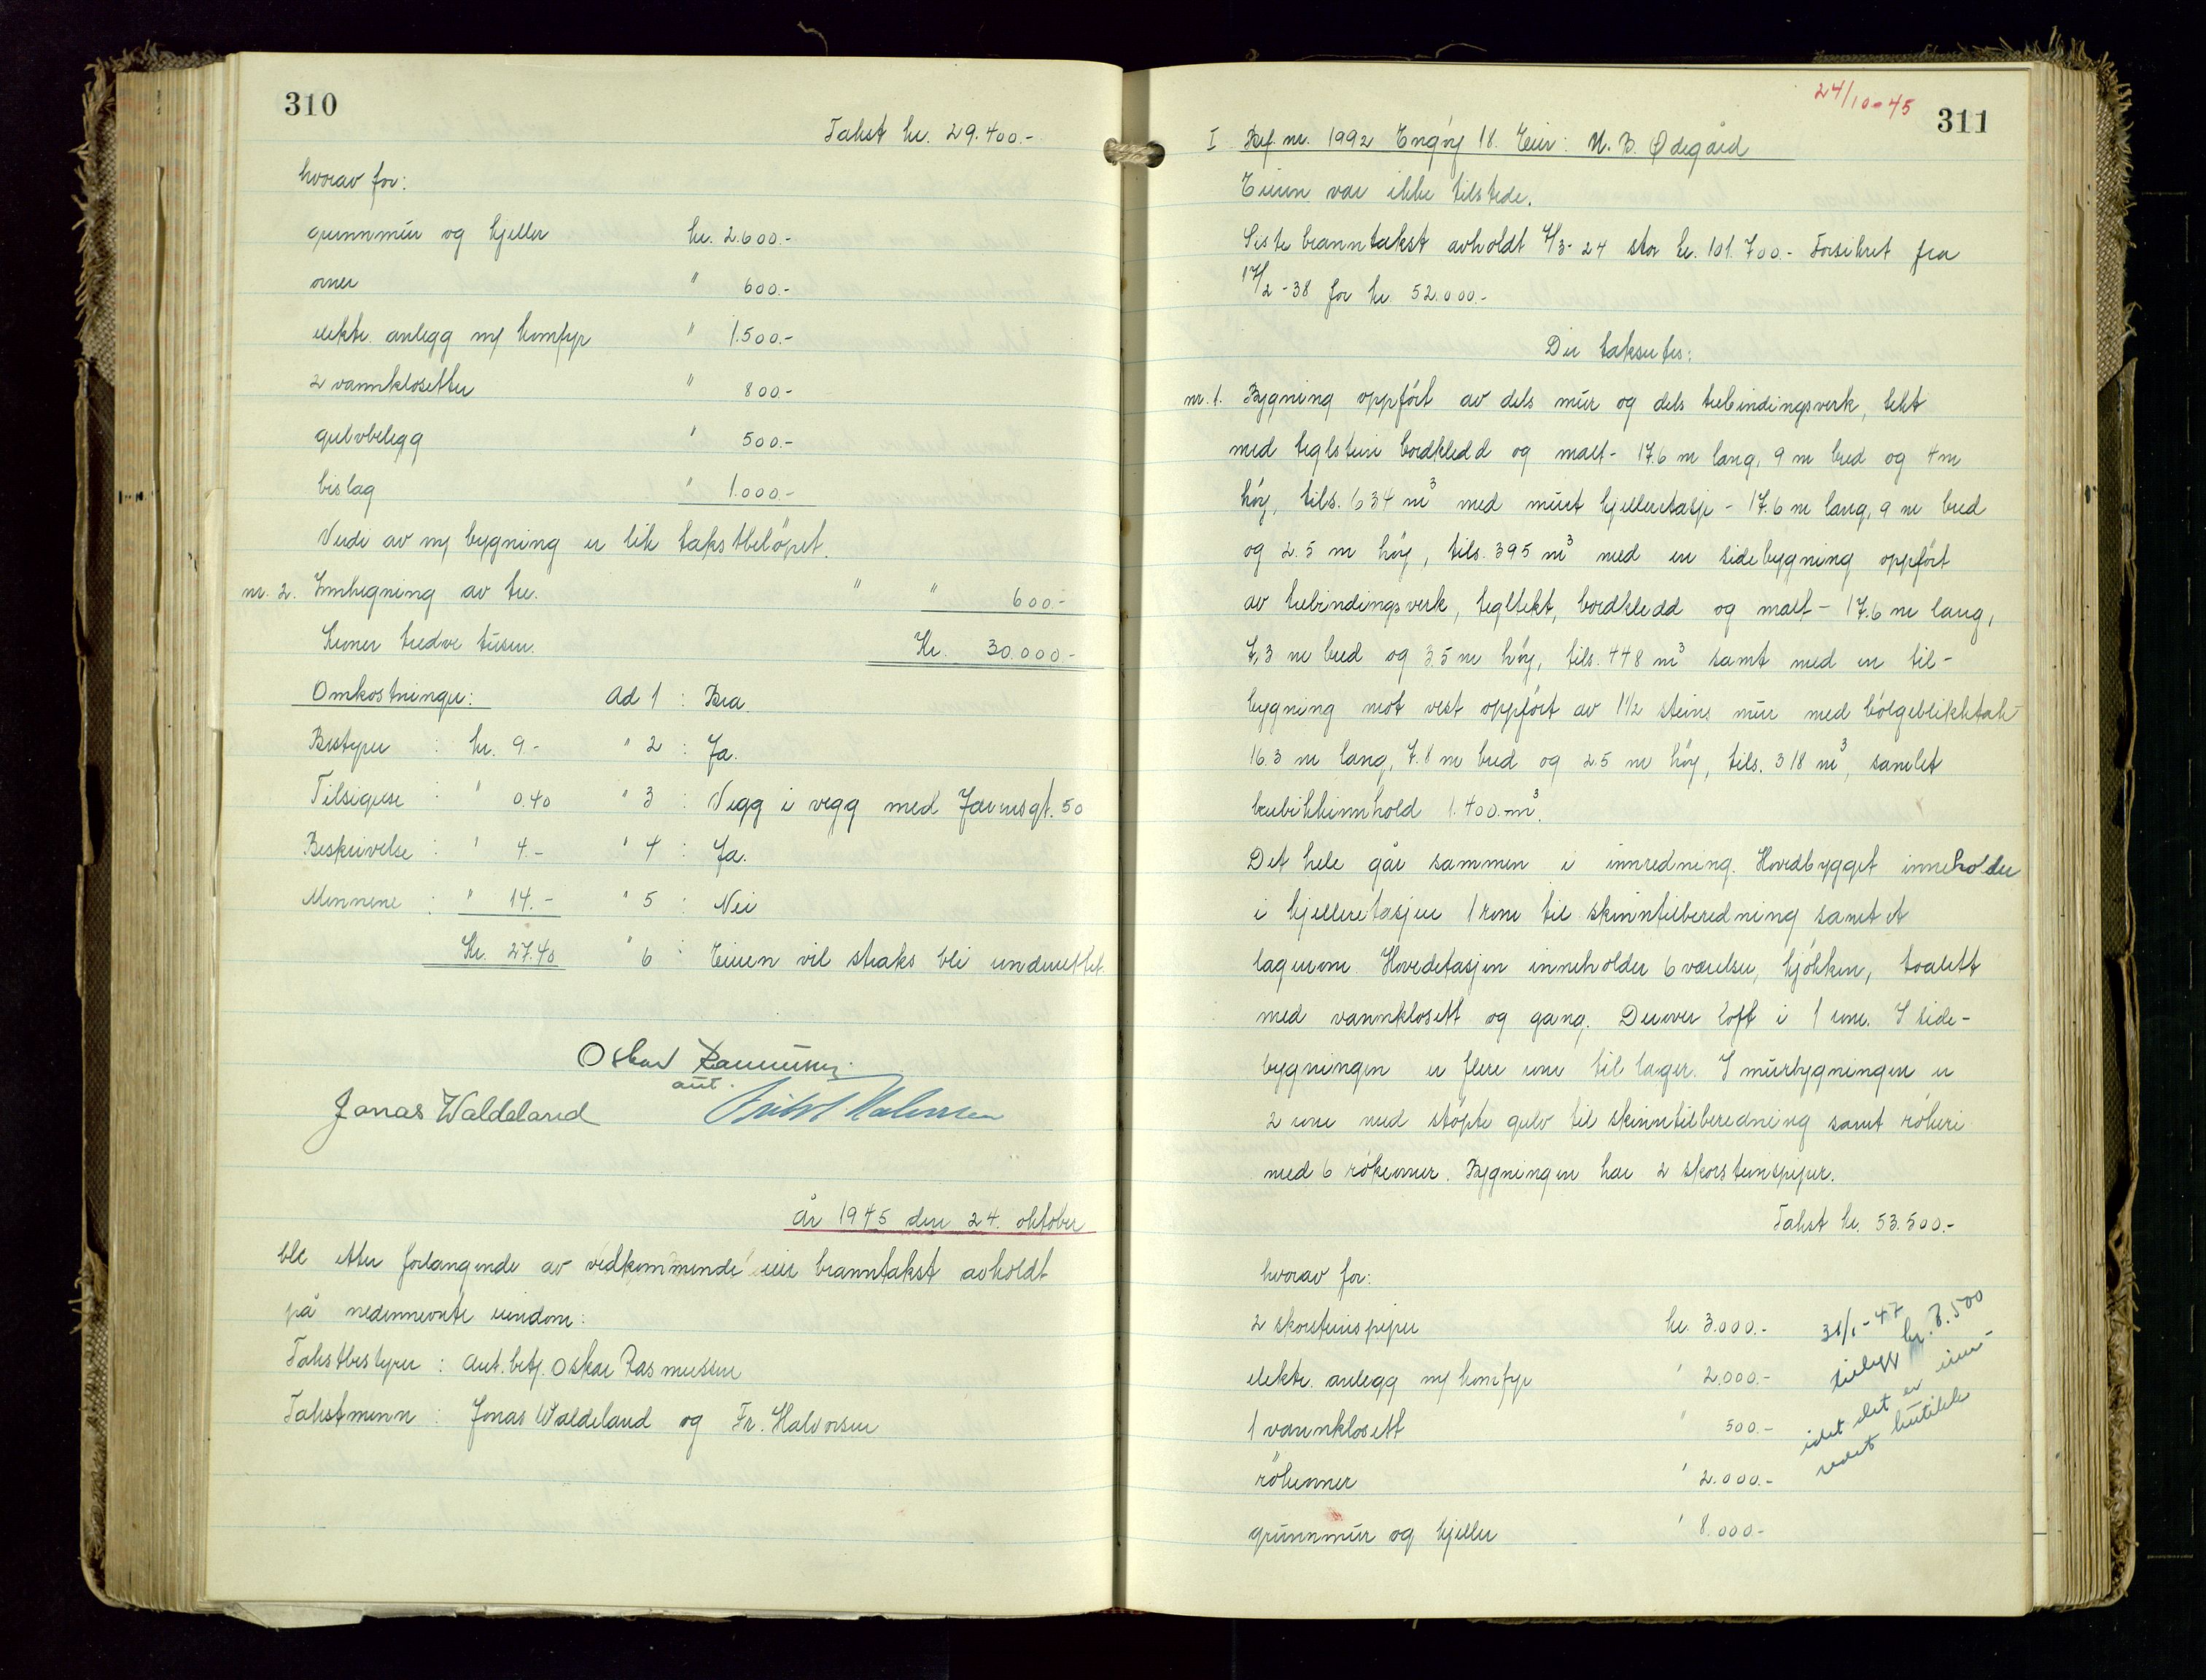 310
Takst kr. 29.400.-
hvorav for:
grunnmur og kjeller kr. 2.600.-
ovner " 600.-
elektr. anlegg m/ komfyr " 1.500.-
2 vannklosetter " 800.-
gulvbelegg " 500.-
bislag " 1.000.-
Verdi av ny bygning er lik takstbeløpet.
nr. 2. Innhegning av tre. " " 600.-
Kroner tredve tusen. Kr. 30.000.-
Omkostninger: Ad 1 : Bra.
Bestyrer : kr. 9.- " 2 : Ja.
Tilsigelse : " 0.40 " 3 : Vegg i vegg med Jærnesgt. 50
Beskrivelse : " 4.- " 4 : Ja.
Mennene : " 14.- " 5 : Nei
Kr. 27.40 " 6 : Eieren vil straks bli underrettet.
Oskar Rasmussen
aut.
Jonas Waldeland Fridtjof Halvorsen
År 1945 den 24. oktober
ble etter forlangende av vedkommende eier branntakst avholdt
på nedennevnte eiendom:
Takstbestyrer : aut. betj. Oskar Rasmussen
Takstmenn : Jonas Waldeland og Fr. Halvorsen
24/10-45
311
I Bref. nr. 1992 Engøy 18. Eier: N. B. Ødegård
Eieren var ikke tilstede.
Siste branntakst avholdt 7/3-24 stor kr. 101.700.- Forsikret fra
17/2-38 for kr. 52.000.-
Der takseres:
nr. 1. Bygning oppført av dels mur og dels trebindingsverk, tekt
med teglstein bordkledd og malt - 17.6 m lang, 9 m bred og 4 m
høy, tils. 634 m³ med muret kjelleretasje - 17.6 m lang, 9 m bred
og 2.5 m høy, tils. 395 m³ med en sidebygning oppført
av trebindingsverk, tegltekt, bordkledd og malt - 17.6 m lang,
7,3 m bred og 3.5 m høy, tils. 448 m³ samt med en til-
bygning mot vest oppført av 1½ steins mur med bølgeblikktak
16.3 m lang, 7.8 m bred og 2.5 m høy, tils. 318 m³, samlet
kubikkinnhold 1.400.- m³.
Det hele går sammen i innredning. Hovedbygget inneholder
i kjelleretasjen 1 rom til skinntilberedning samt et
lagerrom. Hovedetasjen inneholder 6 værelser, kjøkken, toalett
med vannklosett og gang. Derover loft i 1 rom. I side-
bygningen er flere rom til lager. I murbygningen er
2 rom med støpte gulv til skinntilberedning samt røkeri
med 6 røkeovner. Bygningen har 2 skorsteinspiper.
Takst kr. 53.500.-
hvorav for:
2 skorsteinspiper kr. 3.000.-
elektr. anlegg m/ komfyr " 2.000.-
1 vannklosett " 500.-
røkeovner " 2.000.-
grunnmur og kjeller " 8.000.-
31/1-47
tillegg kr. 8.500
idet det er inn-
redet butikk